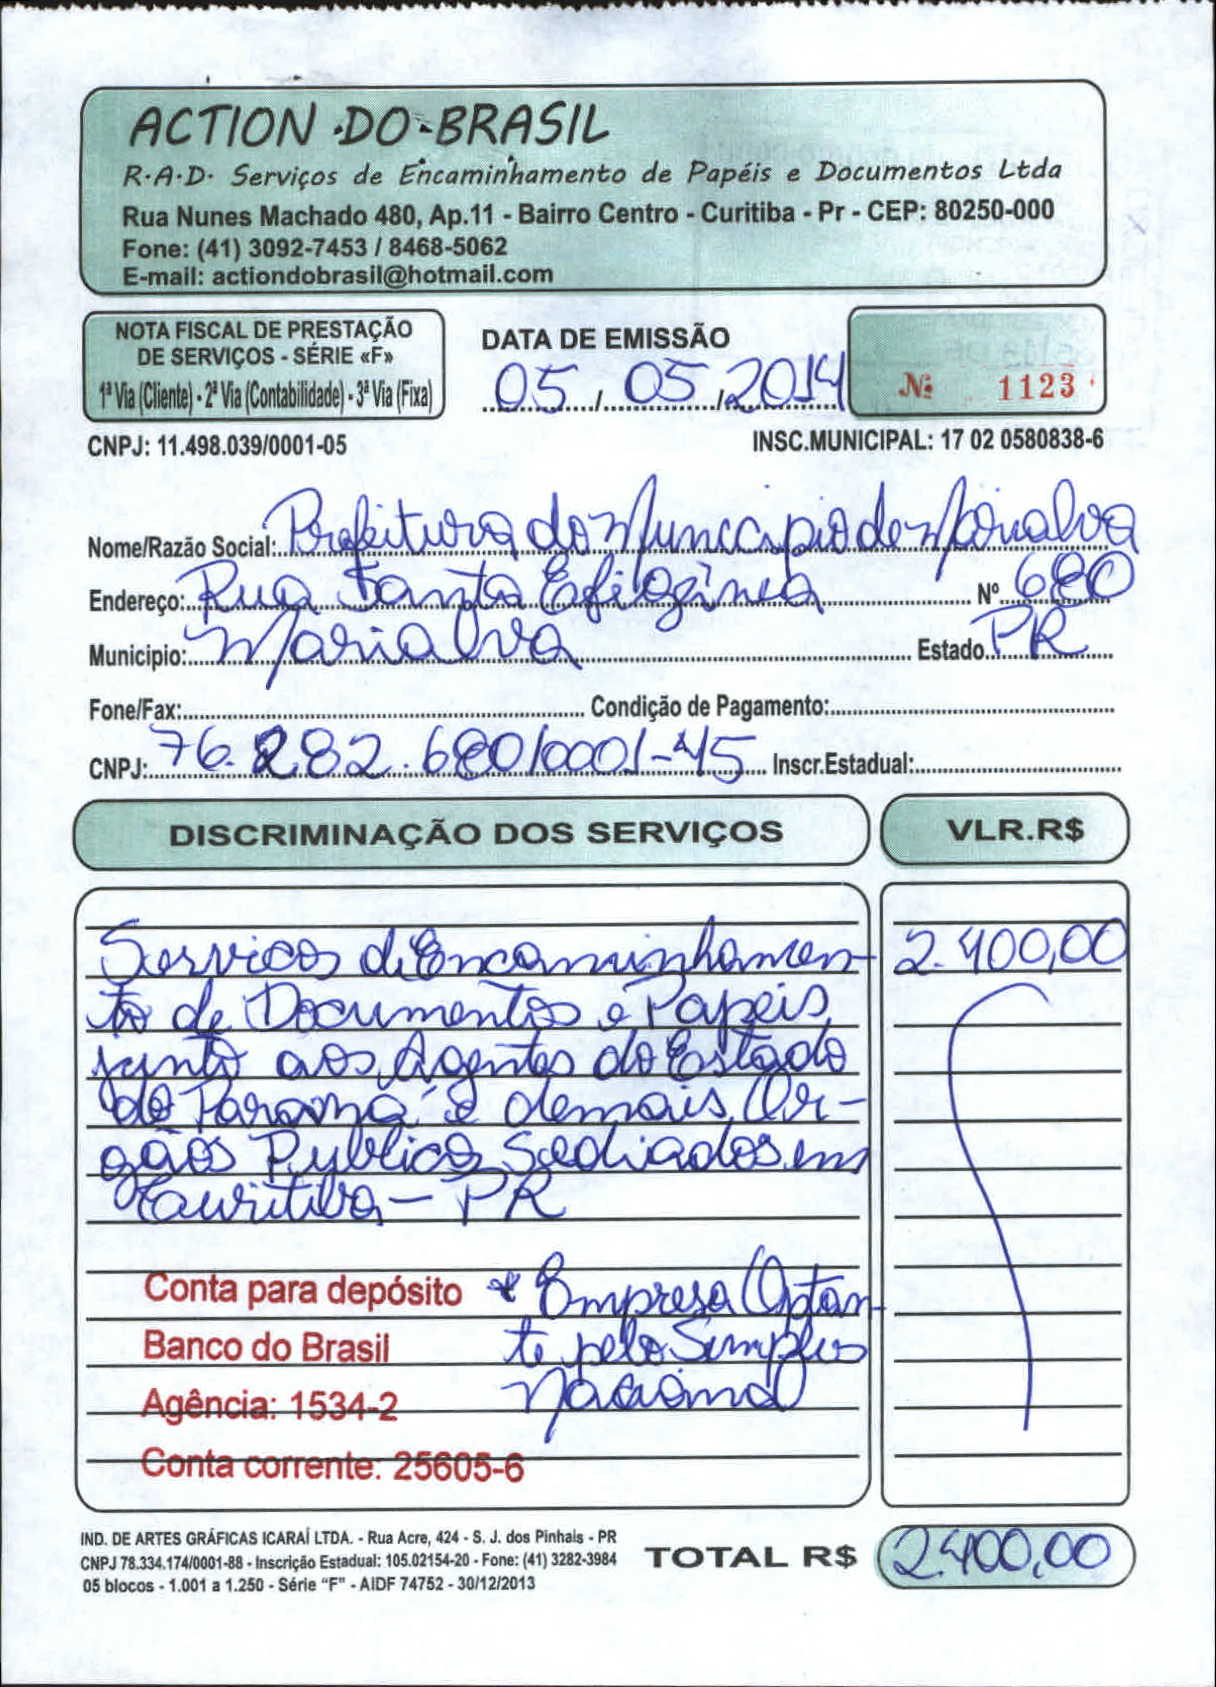 ACTION DO BRASIL
R.A.D. Serviços de Encaminhamento de Papéis e Documentos Ltda
Rua Nunes Machado 480, Ap.11 - Bairro Centro - Curitiba - Pr - CEP: 80250-000
Fone: (41) 3092-7453 / 8468-5062
E-mail: actiondobrasil@hotmail.com
NOTA FISCAL DE PRESTAÇÃO
DE SERVIÇOS - SÉRIE «F»
1ª Via (Cliente) - 2ª Via (Contabilidade) - 3ª Via (Fixa)
DATA DE EMISSÃO
05 / 05 / 2014
Nº 1123
CNPJ: 11.498.039/0001-05
INSC.MUNICIPAL: 17 02 0580838-6
Nome/Razão Social: Prefeitura do Municcipio de Marialva
Endereço: Rua Santa Efilgínea Nº 680
Municipio: Marialva Estado PR
Fone/Fax: Condição de Pagamento:
CNPJ: 76.282.680/0001-45 Inscr.Estadual:
DISCRIMINAÇÃO DOS SERVIÇOS VLR.R$
Servicos de Encaminhamen- 2.400,00
to de Documentos e Papeis
junto aos Agentes do Estado
do Paraná e demais Or-
gãos Publicos Sediados em
Curitiba - PR
Conta para depósito * Empresa Optan-
Banco do Brasil te pelo Simples
Agência: 1534-2 Nacional
Conta corrente: 25605-6
IND. DE ARTES GRÁFICAS ICARAÍ LTDA. - Rua Acre, 424 - S. J. dos Pinhais - PR
CNPJ 78.334.174/0001-88 - Inscrição Estadual: 105.02154-20 - Fone: (41) 3282-3984
05 blocos - 1.001 a 1.250 - Série "F" - AIDF 74752 - 30/12/2013
TOTAL R$ 2.400,00